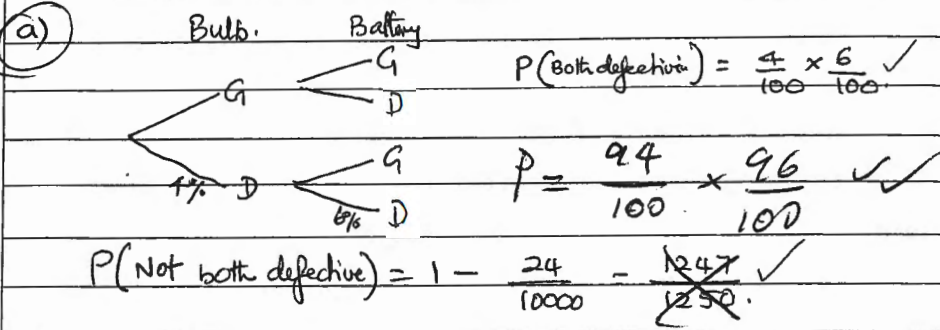 a) Bulb. Battery
G
G
D
P(Both defective) = 4/100 × 6/100. ✓
G
4% D
6% D
P = 94/100 × 96/100 ✓✓
P(Not both defective) = 1 - 24/10000 = 1247/1250. ✓